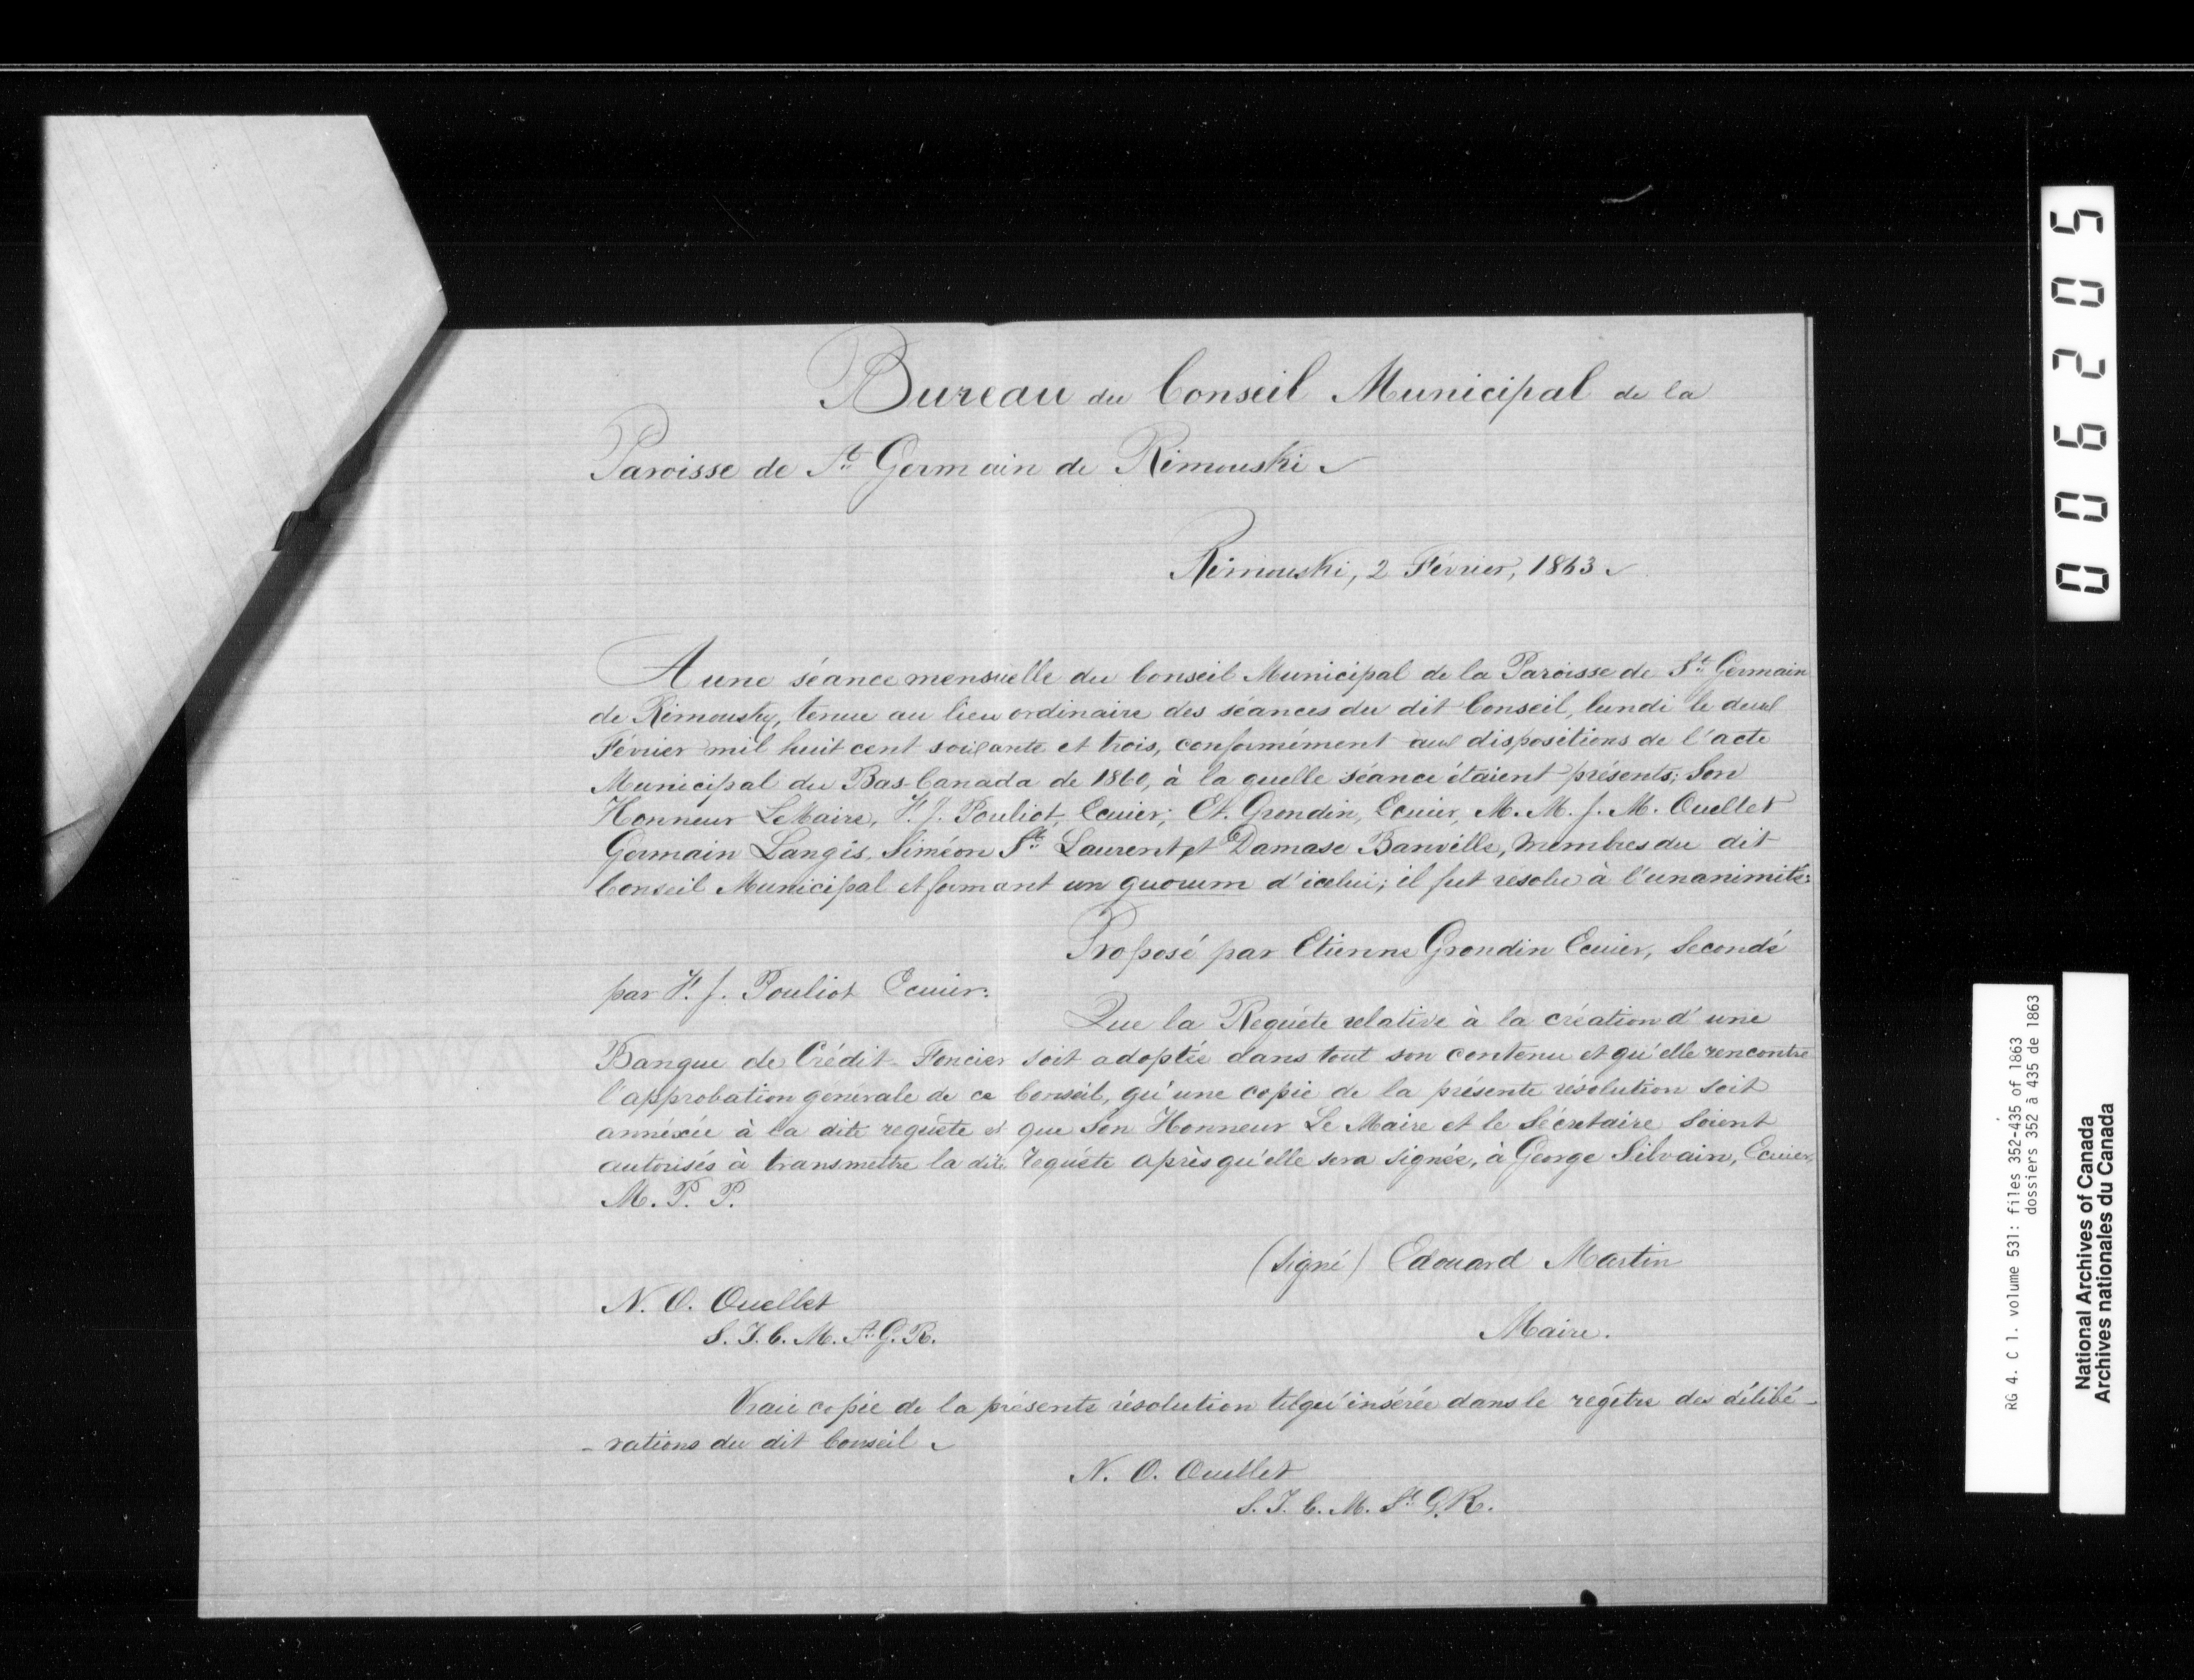 Bureau du Conseil Municipal de la
Paroisse de St. Germain de Rimouski
Rimouski, 2 Février, 1863
A une séance mensuelle du Conseil Municipal de la Paroisse de St. Germain
de Rimousky, tenue au lieu ordinaire des séances du dit Conseil, lundi le deux
Février mil huit cent soixante et trois, conformément aux dispositions de l'acte
Municipal du Bas-Canada de 1860, à la quelle séance étaient présents; Son
Honneur Le Maire, F. J. Pouliot, Ecuier; Et. Grondin, Ecuier, M. M. J. M. Ouellet
Germain Langis, Siméon St. Laurent et Damase Banville, Membres du dit
Conseil Municipal et formant un quorum d'icelui; il fut resolu à l'unanimité:
Proposé par Etienne Grondin Ecuier, Secondé
par F. J. Pouliot Ecuier:
Que la Requête relative à la création d'une
Banque de Crédit-Foncier soit adoptée dans tout son contenu et qu'elle rencontre
l'approbation générale de ce Conseil, qu'une copie de la présente résolution soit
annéxée à la dite requête et que Son Honneur Le Maire et le Sécretaire soient
autorisés à transmettre la dite requête après qu'elle sera signée, à George Silvain, Ecuier,
M. P. P.
(Signé) Edouard Martin
N. O. Ouellet
S. T. C. M. St. G. R.
Maire.
Vraie copie de la présente résolution telqu'insérée dans le regître des délibé-
-rations du dit Conseil
N. O. Ouellet
S. T. C. M. St. G. R.
006205
RG 4. C 1. volume 531: files 352-435 of 1863
dossiers 352 à 435 de 1863
National Archives of Canada
Archives nationales du Canada